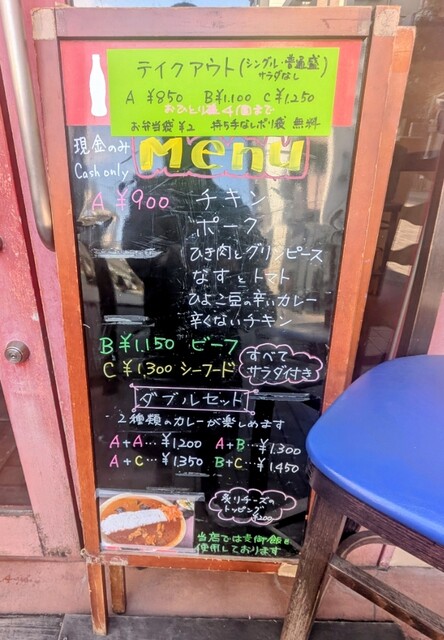 テイクアウト(シングル・普通盛 サラダなし)
A ¥850 B¥1.100 C¥1.250
おひとり様4個まで
お弁当袋 ¥2 持ち手なしポリ袋 無料
現金のみ
Cash only
Menu
A ¥900 チキン
ポーク
ひき肉とグリンピース
なすとトマト
ひよこ豆の辛いカレー
辛くないチキン
B ¥1.150 ビーフ
C ¥1,300 シーフード
すべて
サラダ付き
ダブルセット
2種類のカレーが楽しめます
A+A…¥1.200 A+B…¥1.300
A+C…¥1.350 B+C…¥1.450
炙りチーズの
トッピング
¥200
当店では麦御飯を
使用しております